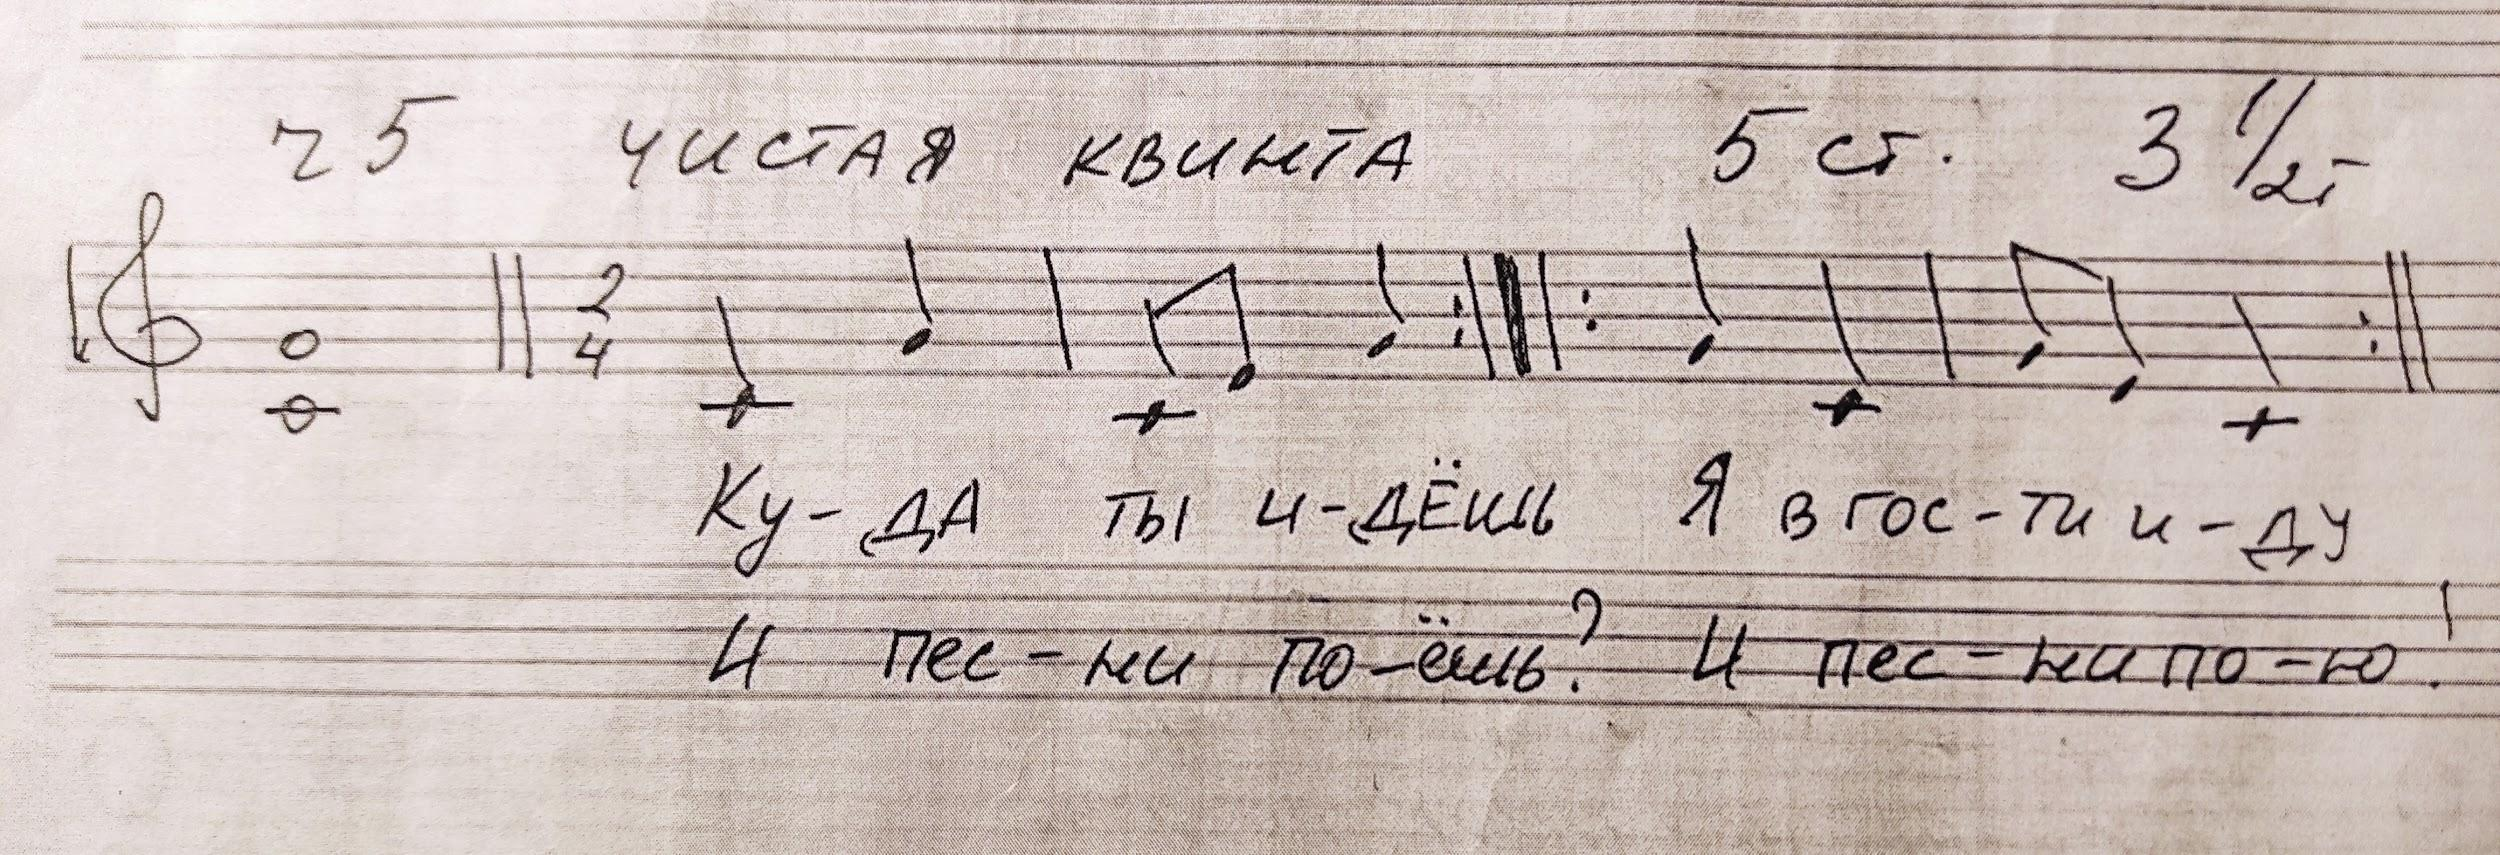 ч 5 чистая квинта 5 ст. 3 1/2т
2
4
Ку-да ты и-дёшь Я в гос-ти и-ду
И пес-ни по-ёшь? И пес-ни по-ю!